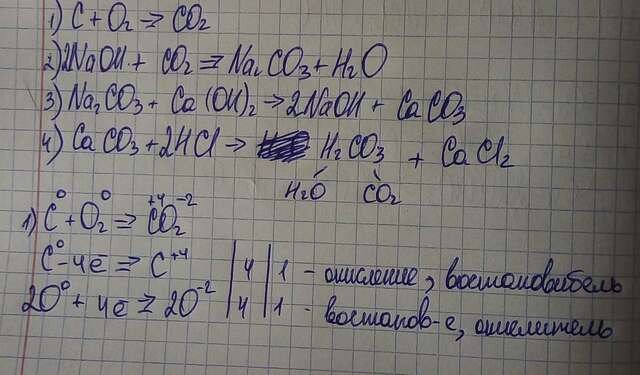 1) C + O₂ → CO₂
2) 2NaOH + CO₂ = Na₂CO₃ + H₂O
3) Na₂CO₃ + Ca(OH)₂ → 2NaOH + CaCO₃
4) CaCO₃ + 2HCl → H₂CO₃ + CaCl₂
H₂O CO₂
1) C⁰ + O₂⁰ ⇒ C⁺⁴O₂⁻²
C⁰ - 4e̅ ⇒ C⁺⁴ | 4 | 1 - окисление, востановитель
2O⁰ + 4e̅ ⇒ 2O⁻² | 4 | 1 - востанов-е, окислитель